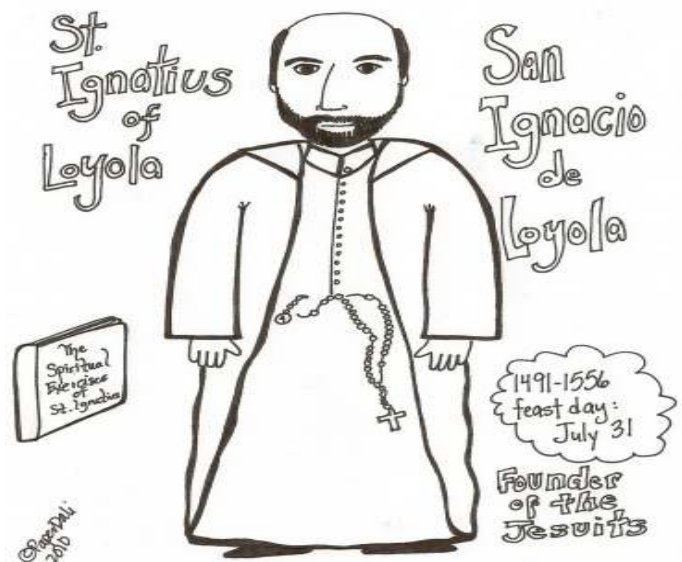 St.
Ignatius
of
Loyola
San
Ignacio
de
Loyola
The
Spiritual
Exercises
of
St. Ignatius
1491-1556
feast day:
July 31
Founder
of the
Jesuits
©PaperDali
2010